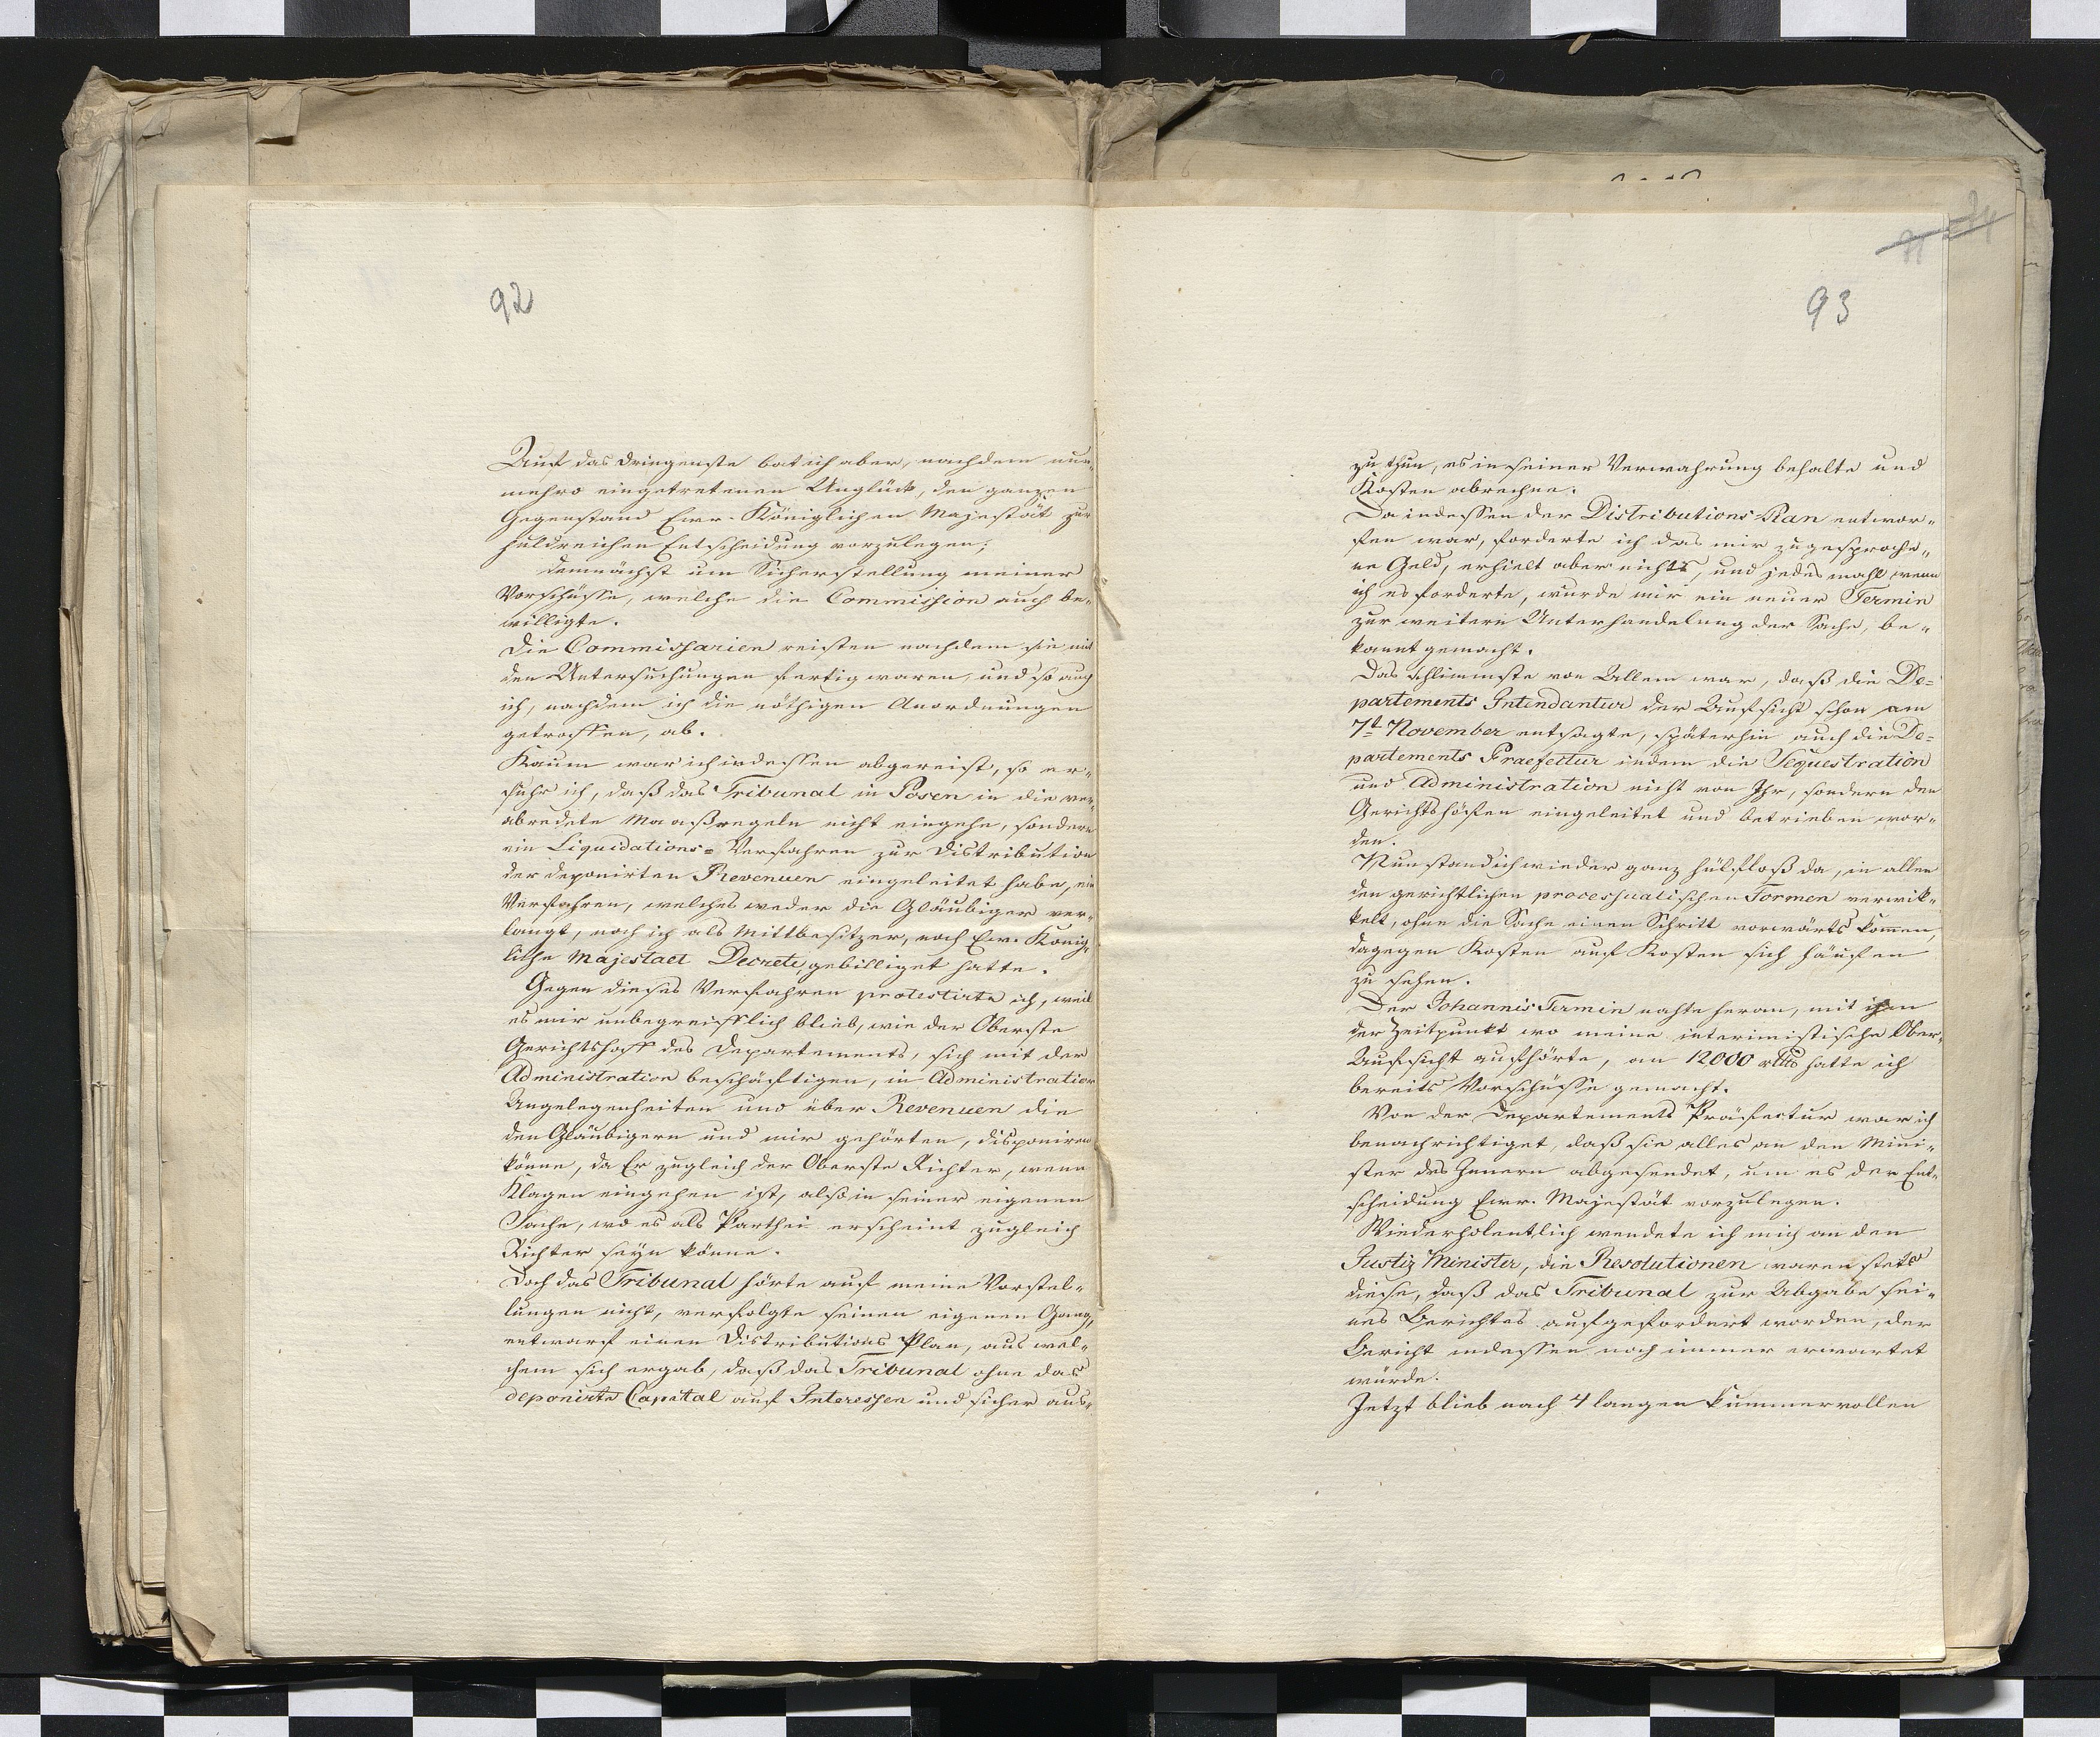 92
Auf das dringenste bat ich aber, nachdem nun„
mehro eingetretenen Unglück, den ganzen
Gegenstand Ewr. Königlichen Majestät zur
huldreichen Entscheidung vorzulegen;
demnächst um Sicherstellung meiner
Vorschüsse, welche die Commission auch be„
willigte.
Die Commissarien reisten nachdem sie mit
den Untersuchungen fertig waren, und so auch
ich, nachdem ich die nöthigen Anordnungen
getroffen, ab.
Kaum war ich indessen abgereist, so er„
fuhr ich, daß das Tribunal in Posen in die ver„
abredete Maaßregeln nicht eingehe, sondern
ein Liquidations= Verfahren zur Distribution
der deponirten Revenuen eingeleitet habe, ein
Verfahren, welches weder die Gläubiger ver„
langt, noch ich als Mittbesitzer, noch Ew. König„
liche Majestaet Decrete gebilliget hatte.
Gegen dieses Verfahren protestirte ich, weil
es mir unbegreifflich blieb, wie der Oberste
Gerichtshoff des Departements, sich mit der
Administration beschäftigen, in Administration
Angelegenheiten und über Revenuen die
den Gläubigern und mir gehörten, disponiren
könne, da Er zugleich der Oberste Richter, wenn
Klagen eingehen ist, also in seiner eigenen
Sache, wo es als Parthei erscheint zugleich
Richter seyn könne.
Doch das Tribunal hörte auf meine Vorstel„
lungen nicht, verfolgte seinen eigenen Gang,
entwarf einen Distributions Plan, aus wel„
chem sich ergab, daß das Tribunal ohne das
deponirte Capital auf Interessen und sicher aus„
24
91
93
zu thun, es in seiner Verwahrung behalte und
Kosten abrechne.
Da indessen der Distributions Plan entwor„
fen war, forderte ich das mir zugesproche„
ne Geld, erhielt aber nichts, und jedesmahl wenn
ich es forderte, wurde mir ein neuer Termin
zur weitern Unterhandelung der Sache, be„
kannt gemacht.
Das schlimmste von Allem war, daß die De=
partements Intendantur der Aufsicht schon am
7t November entsagte, späterhin auch die De=
partements Praefectur indem die Sequestration
und Administration nicht von Ihr, sondern den
Gerichtshöfen eingeleitet und betrieben wor„
den.
Nun stand ich wieder ganz hülfloß da, in allen
den gerichtlichen processualischen Formen verwik„
kelt, ohne die Sache einen Schritt vorwärts kommen,
dagegen Kosten auf Kosten sich häufen
zu sehen.
Der Johannis Termin nahte heran, mit ihm
der Zeitpunkt wo meine interimistische Ober„
Aufsicht aufhörte, an 12000 rtlr hatte ich
bereits Vorschüsse gemacht.
Von der Departements Präfectur war ich
benachrichtiget, daß sie alles an den Mini„
ster des Innern abgesendet, um es der Ent„
scheidung Ewr. Majestät vorzulegen.
Wiederholentlich wendete ich mich an den
Justiz Minister, die Resolutionen waren stets
diese, daß das Tribunal zur Abgabe sei„
nes Berichtes aufgefordert worden, der
Bericht indessen noch immer erwartet
würde.
Jetzt blieb nach 4 langen kummervollen